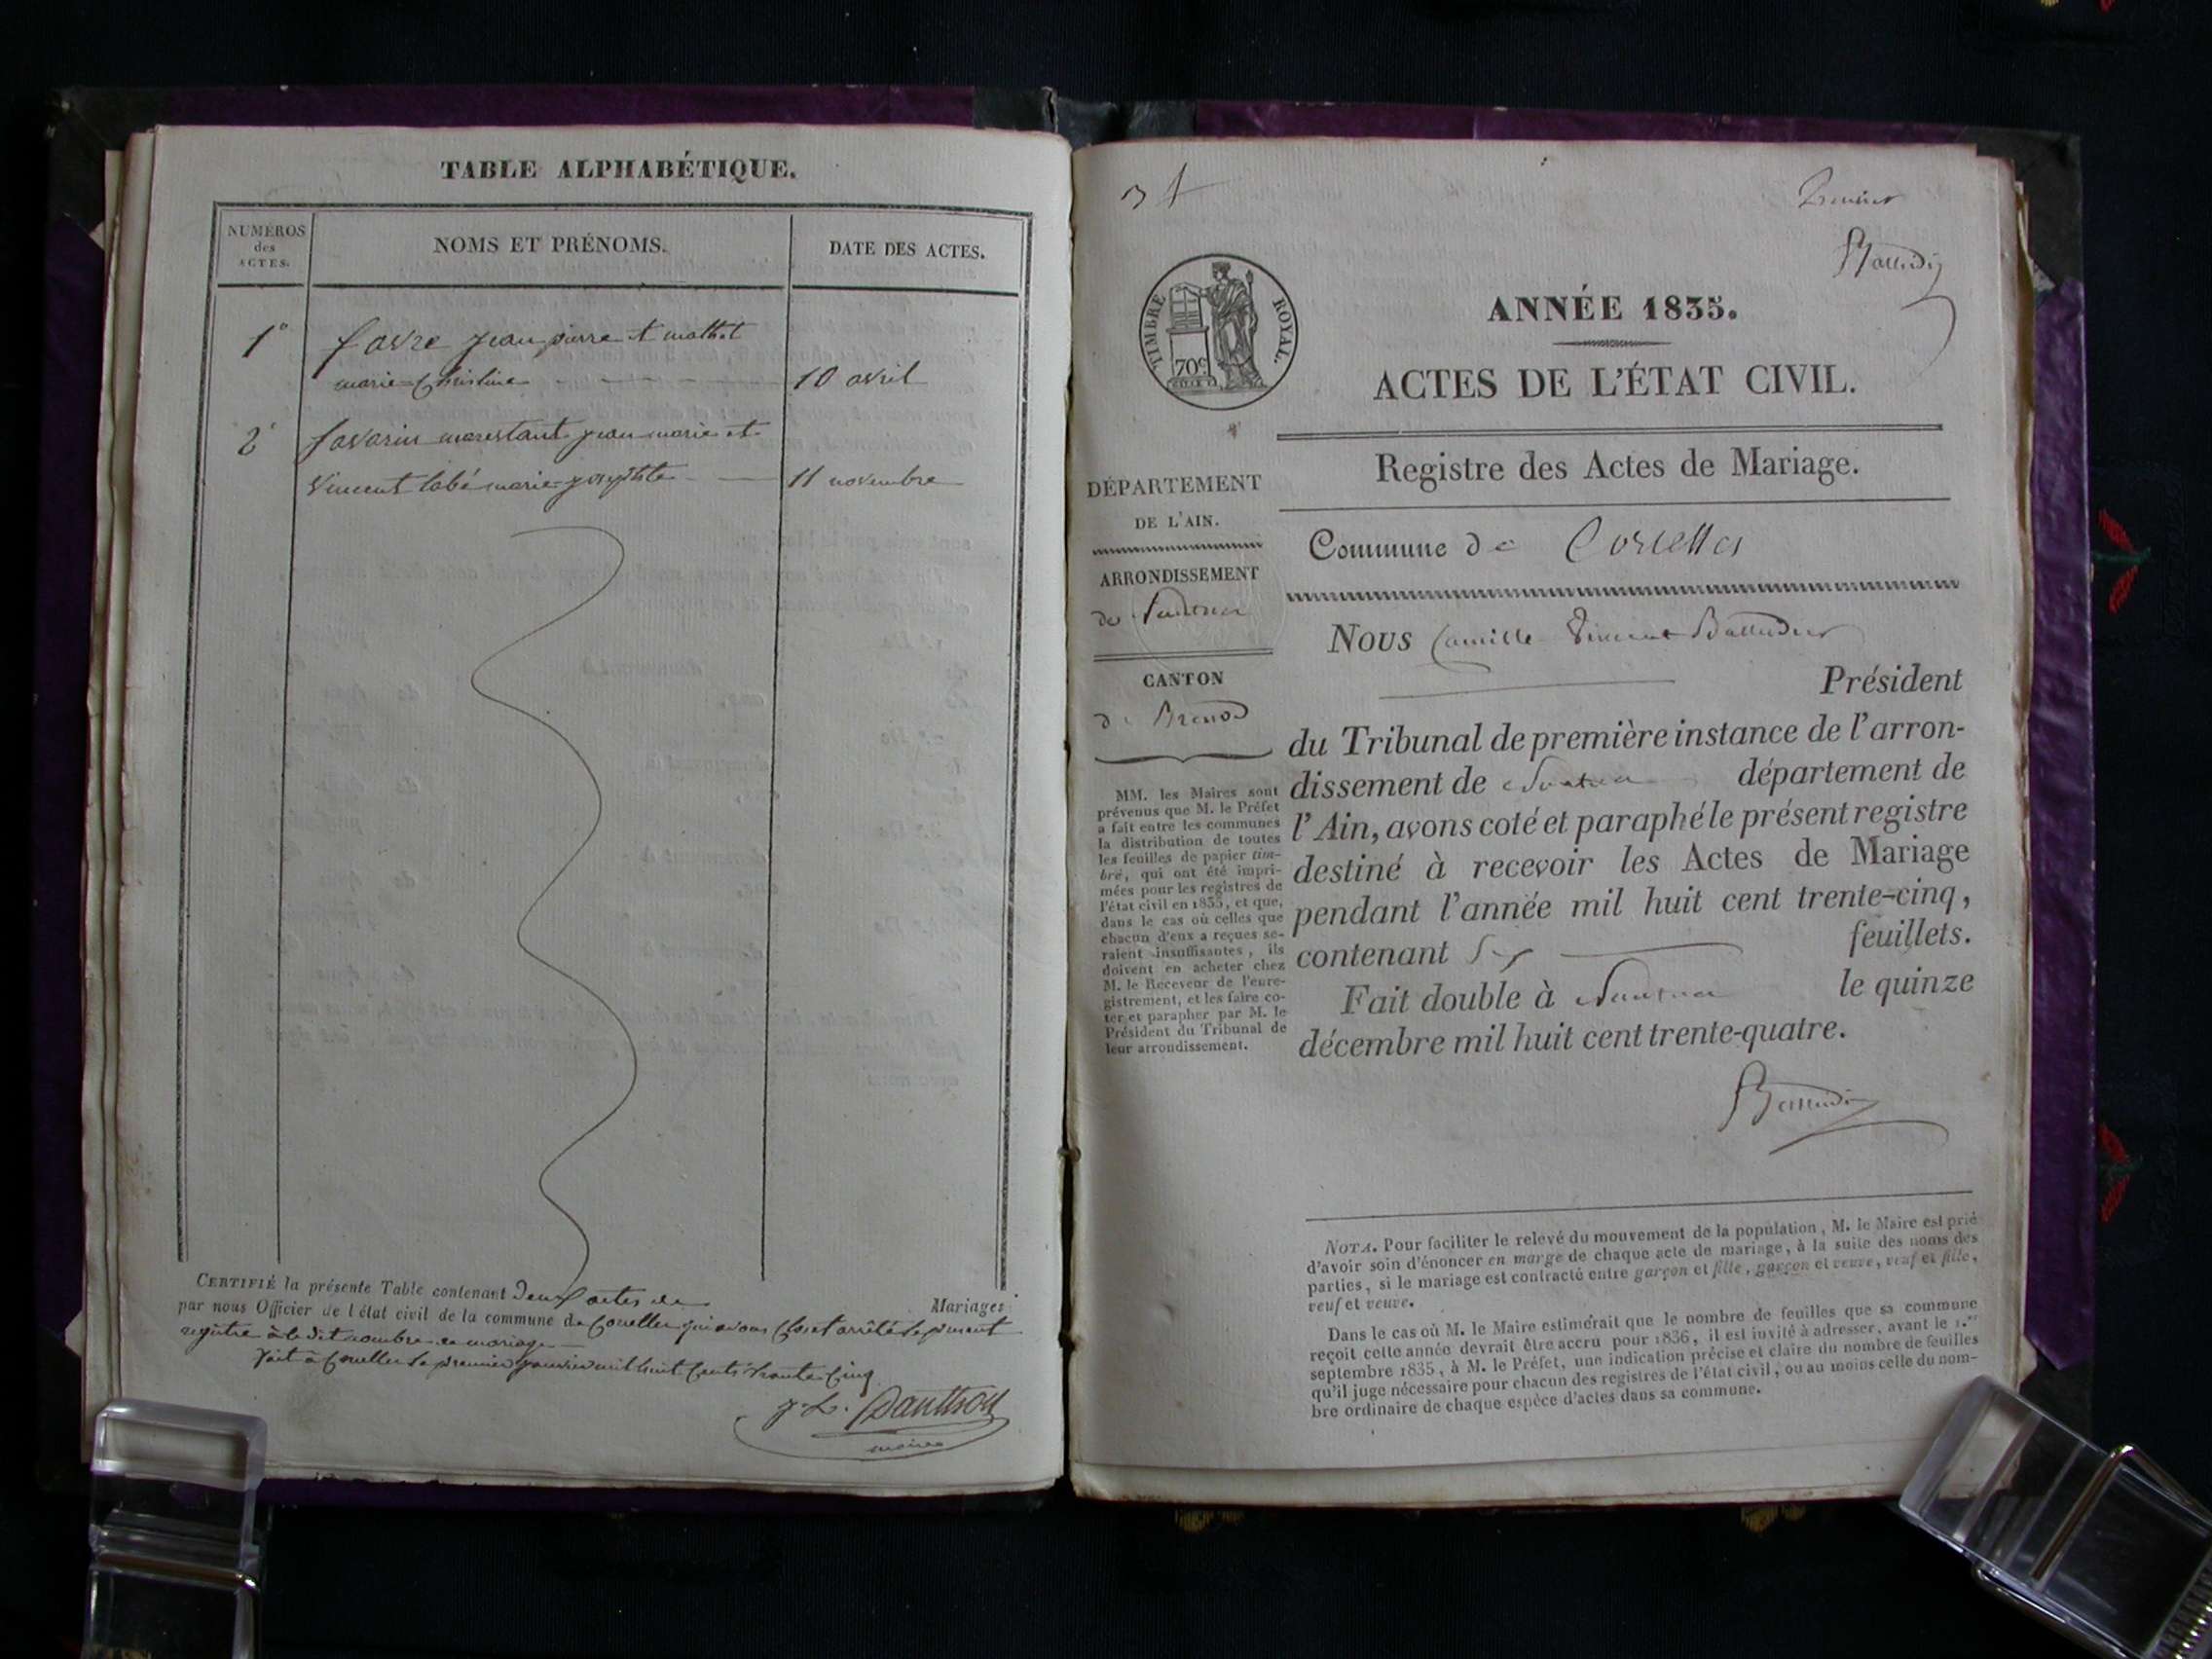 TABLE ALPHABÉTIQUE.
NUMÉROS
des
ACTES.
NOMS ET PRÉNOMS.
DATE DES ACTES.
1° favre jean pierre et
marie=Christine 10 avril
2° jean marie et
Vincent marie= 11 novembre
CERTIFIÉ la présente Table contenant Deux actes de Mariages
par nous Officier de l'état civil de la commune de Corcelles qui avons Clos et arrêté le présent
registre à le dit nombre de mariage
fait à Corcelles le premier janvier mil huit Cents trente Cinq
j. L. Danthon
maire
Premier
TIMBRE ROYAL.
70c
ANNÉE 1835.
ACTES DE L'ÉTAT CIVIL.
Registre des Actes de Mariage.
DÉPARTEMENT
DE L'AIN.
ARRONDISSEMENT
de Nantua
CANTON
de Brenod
MM. les Maires sont
prévenus que M. le Préfet
a fait entre les communes
la distribution de toutes
les feuilles de papier tim-
bré, qui ont été impri-
mées pour les registres de
l'état civil en 1835, et que,
dans le cas où celles que
chacun d'eux a reçues se-
raient insuffisantes, ils
doivent en acheter chez
M. le Receveur de l'enre-
gistrement, et les faire co-
ter et parapher par M. le
Président du Tribunal de
leur arrondissement.
Commune de Corcelles
Nous Camille Vincent
Président
du Tribunal de première instance de l'arron-
dissement de Nantua département de
l'Ain, avons coté et paraphé le présent registre
destiné à recevoir les Actes de Mariage
pendant l'année mil huit cent trente-cinq,
contenant Six feuillets.
Fait double à Nantua le quinze
décembre mil huit cent trente-quatre.
NOTA. Pour faciliter le relevé du mouvement de la population, M. le Maire est prié
d'avoir soin d'énoncer en marge de chaque acte de mariage, à la suite des noms des
parties, si le mariage est contracté entre garçon et fille, garçon et veuve, veuf et fille,
veuf et veuve.
Dans le cas où M. le Maire estimerait que le nombre de feuilles que sa commune
reçoit cette année devrait être accru pour 1836, il est invité à adresser, avant le 1.er
septembre 1835, à M. le Préfet, une indication précise et claire du nombre de feuilles
qu'il juge nécessaire pour chacun des registres de l'état civil, ou au moins celle du nom-
bre ordinaire de chaque espèce d'actes dans sa commune.